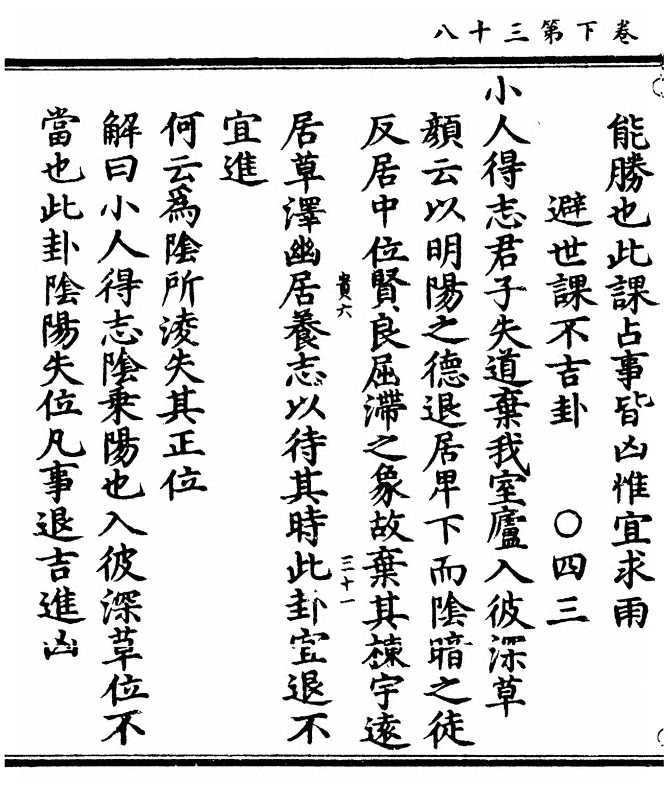 卷下第三十八
能勝也此課占事皆凶惟宜求雨
避世課不吉卦　〇四三
小人得志君子失道棄我室廬入彼深草
顔云以明陽之德退居卑下而陰暗之徒
反居中位賢良屈滯之象故棄其棟宇遠
賁六
三十一
居草澤幽居養志以待其時此卦宜退不
宜進
何云爲陰所淩失其正位
解曰小人得志陰乘陽也入彼深草位不
當也此卦陰陽失位凡事退吉進凶